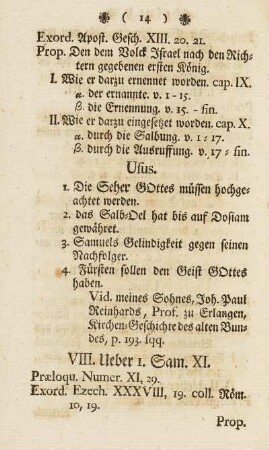 ( 14 )
Exord. Apost. Gesch. XIII. 20. 21.
Prop. Den dem Volck Israel nach den Rich-
tern gegebenen ersten König.
I. Wie er darzu ernennet worden. cap. IX.
α. der ernannte. v. 1-15.
β. die Ernennung. v. 15. - fin.
II. Wie er darzu eingesetzt worden. cap. X.
α. durch die Salbung. v. 1-17.
β. durch die Ausruffung. v. 17- fin.
Usus.
1. Die Seher GOttes müssen hochge-
achtet werden.
2. das Salb-Oel hat bis auf Dosiam
gewähret.
3. Samuels Gelindigkeit gegen seinen
Nachfolger.
4. Fürsten sollen den Geist GOttes
haben.
Vid. meines Sohnes, Joh. Paul
Reinhards, Prof. zu Erlangen,
Kirchen-Geschichte des alten Bun-
des, p. 193. sqq.
VIII. Ueber 1. Sam. XI.
Præloqu. Numer. XI, 29.
Exord. Ezech. XXXVIII, 19. coll. Röm.
10, 19.
Prop.